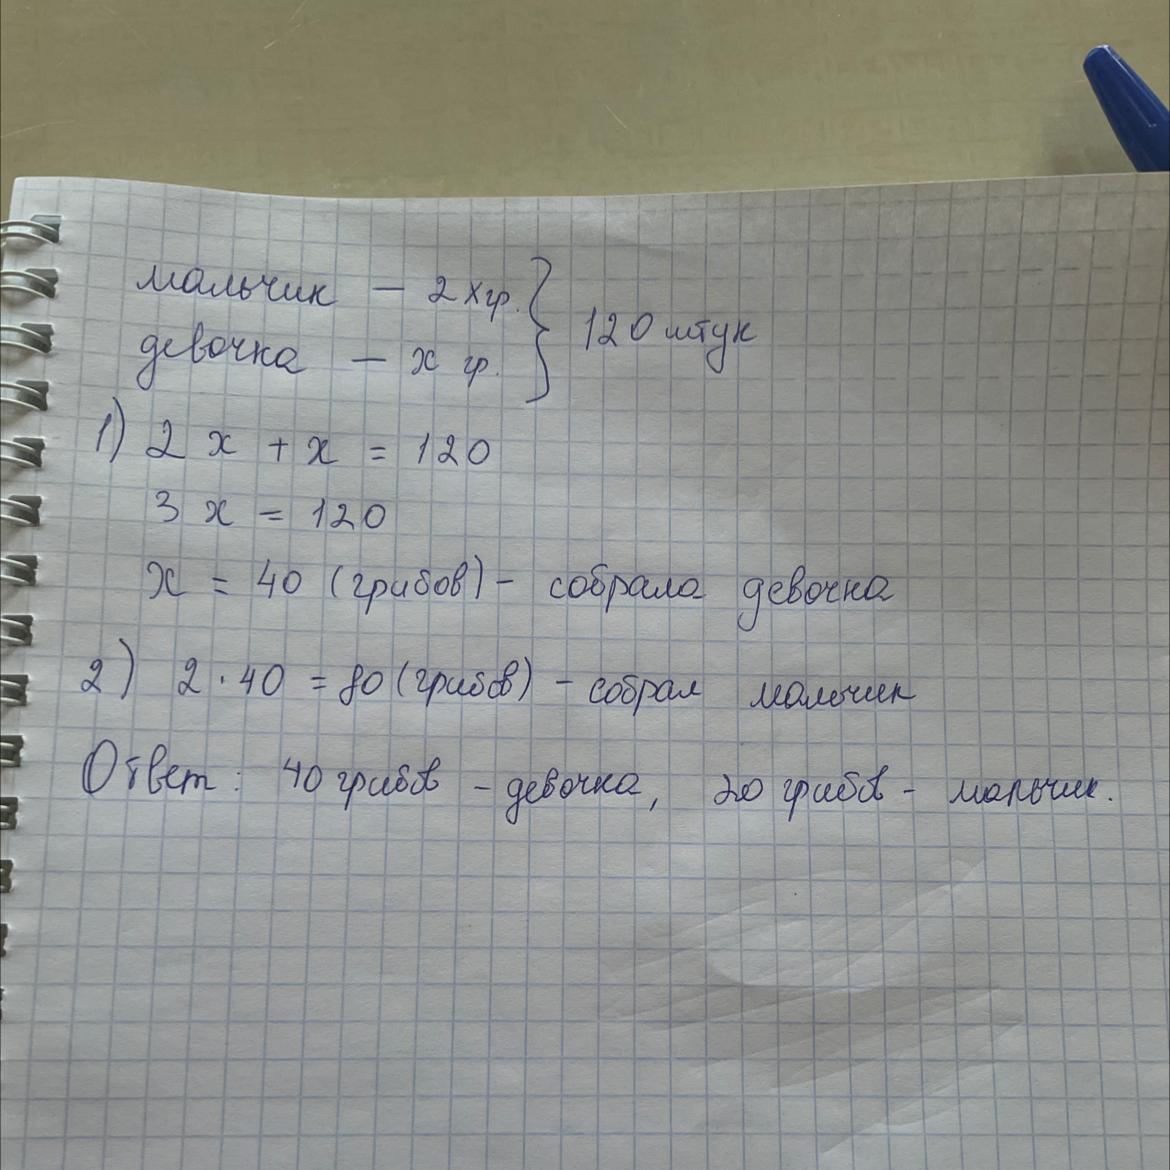 мальчик – 2 х гр.
девочка – х гр.
120 штук
1) 2 х + х = 120
3 х = 120
х = 40 (грибов) – собрала девочка
2) 2 · 40 = 80 (грибов) – собрал мальчик
Ответ: 40 грибов – девочка, 20 грибов – мальчик.